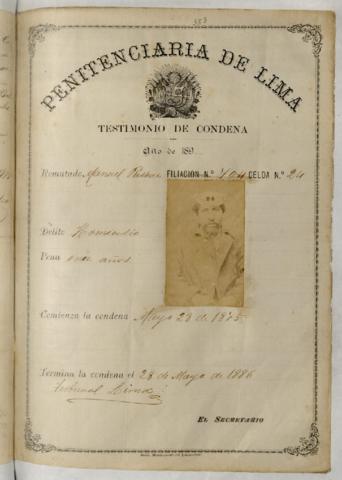 353
PENITENCIARIA DE LIMA
TESTIMONIO DE CONDENA
Año de 189
Rematado Manuel FILIACION N.º 404 CELDA N.º 24
Delito Homicidio
Pena once años
Comienza la condena Mayo 28 de 1875
Termina la condena el 28 de Mayo de 1886
Tribunal
EL SECRETARIO